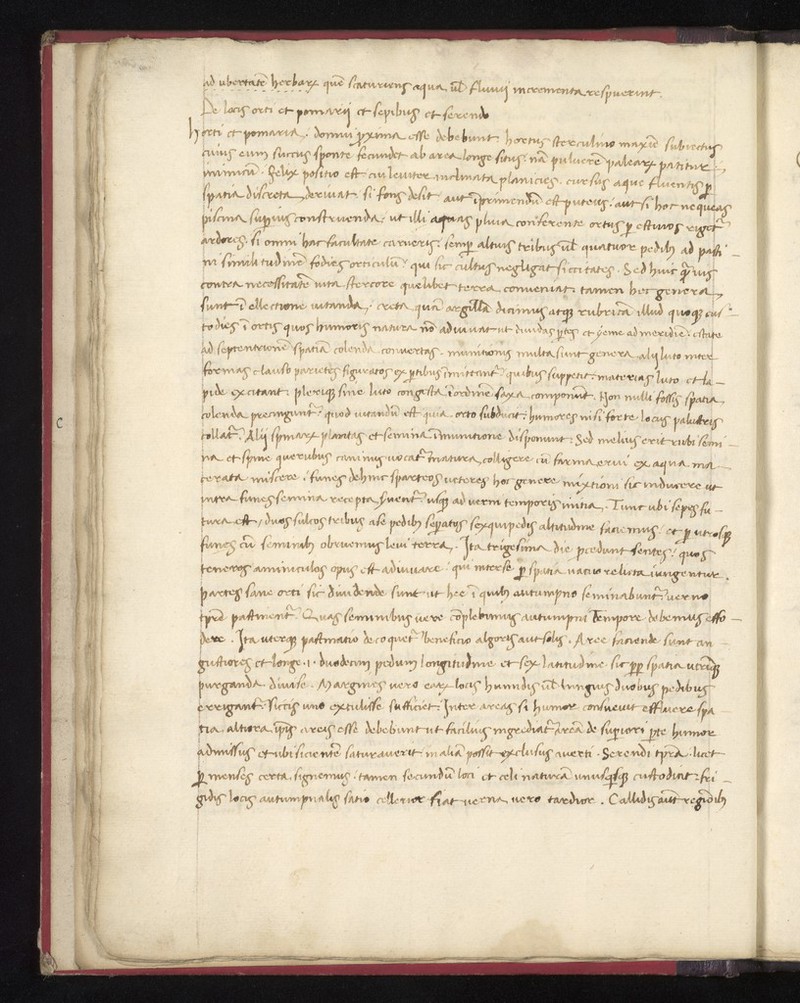 ad ubertatē herbarꝝ quē scaturiens aqua ul̄ fluuij incrementa respuerint.
De locis orti et pomarij et sepibus et serendo
Horti et pomaria. domui ꝓxima esse debebunt hortus sterculino maxīe subiectus
cuius eum succus sponte fecundet ab area longe situs. nā puluerē palearꝝ patitur
inimicū. felix positio est cui leuiter inclinata planicies. cursus aque fluentis ꝑ
spatia discreta deriuat. si fons desit aut īprimendū est puteus. aut si hoc nequeas
piscina suꝑius construenda. ut illi aquas pluuia conferente ortus ꝑ estiuos riget᷑
ardores. si omni hac facultate carueris. semꝑ altius tribus ul̄ quatuor pedib ad pasti
ni similitudinē fodies orticulū. qui sic cultus negligat siccitates. Sed huic q̄uis
contra necessitatē iuta stercore quelibet terra conueniat. tamen hec genera
sunt ī ellectione uitanda. creta quā argillā dicimus atqꝫ rubricā illud quoqꝫ cus
todies ī ortis quos humoris natura nō adiuuat ut diuidas ꝑtes et yeme ad meridiē. estate
ad septentrionē spatia colenda conuertas. munitionis multa sunt genera alij luto inter
formas clauso parietes figuratos ex ꝑtibus īmitent᷑. quibus suppetit. materias luto et la
pide excitant. pleriqꝫ sine luto congesta ī ordinē saxa componunt. Non nulli fossis spatia
colenda precingunt. quod uitandū est quia orto subducit. humores nisi forte locus palustris
collat᷑. Alij spinarꝝ plantas et semina ī munitione disponunt. Sed melius erit rubi semi
na et spine que rubus caninus uocat᷑ matura colligere cū farina erui ex aqua ma
cerata miscere. funes dehinc sparteos ueteres hoc genere mixtioni sic inducere ut
intra funes semina recepta s̄uent᷑ usqꝫ ad uerni temporis initia. Tunc ubi sepes fu
tura est. duos sulcos tribus a se pedib seꝑatos sexquipedis altitudine faciemus. et ꝑ utrosqꝫ
funes cū seminib obruemus leui terra. Ita trigesima die ꝓcedunt sentes. quos
teneros aminiculos opus est adiuuare. qui inter se ꝑ spatia uacuo relicta iungentur.
partes sane orti sic diuidende sunt ut hee ī quib autumpno seminabunt᷑. uerno
tp̄re pastinent᷑. Quas seminibus uere cōplebimus autumpni tempore debemus effo
dere. Ita uteraqꝫ pastinatio decoquet᷑ beneficio algoris aut solis. Aree faciende sunt an
gustiores et longe .i. duodecim pedum longitudine et sex latitudine sic ꝓp̄ spatia utrīqꝫ
purganda diuise. Margines uero earꝝ locis humidis ul̄ irriguis duobus pedibus
errigant. siccis uno extulisse sufficiet. Inter areas si humor consueuit effluere spa
tia altiora ip̄is areis esse debebunt ut facilius ingrediat᷑ areā de suꝑiori ꝑte humor
admissus et ubi sicientē saturauerit in aliā possit exclusus auerti. Serendi tp̄ra. licet
ꝑ menses certa signemus. tamen secundū loci et celi naturā unusqꝫqꝫ custodiat. fri
gidis locis autumpnalis satio cellerior fiat uerna uero tardior. Callidis aūt regionib